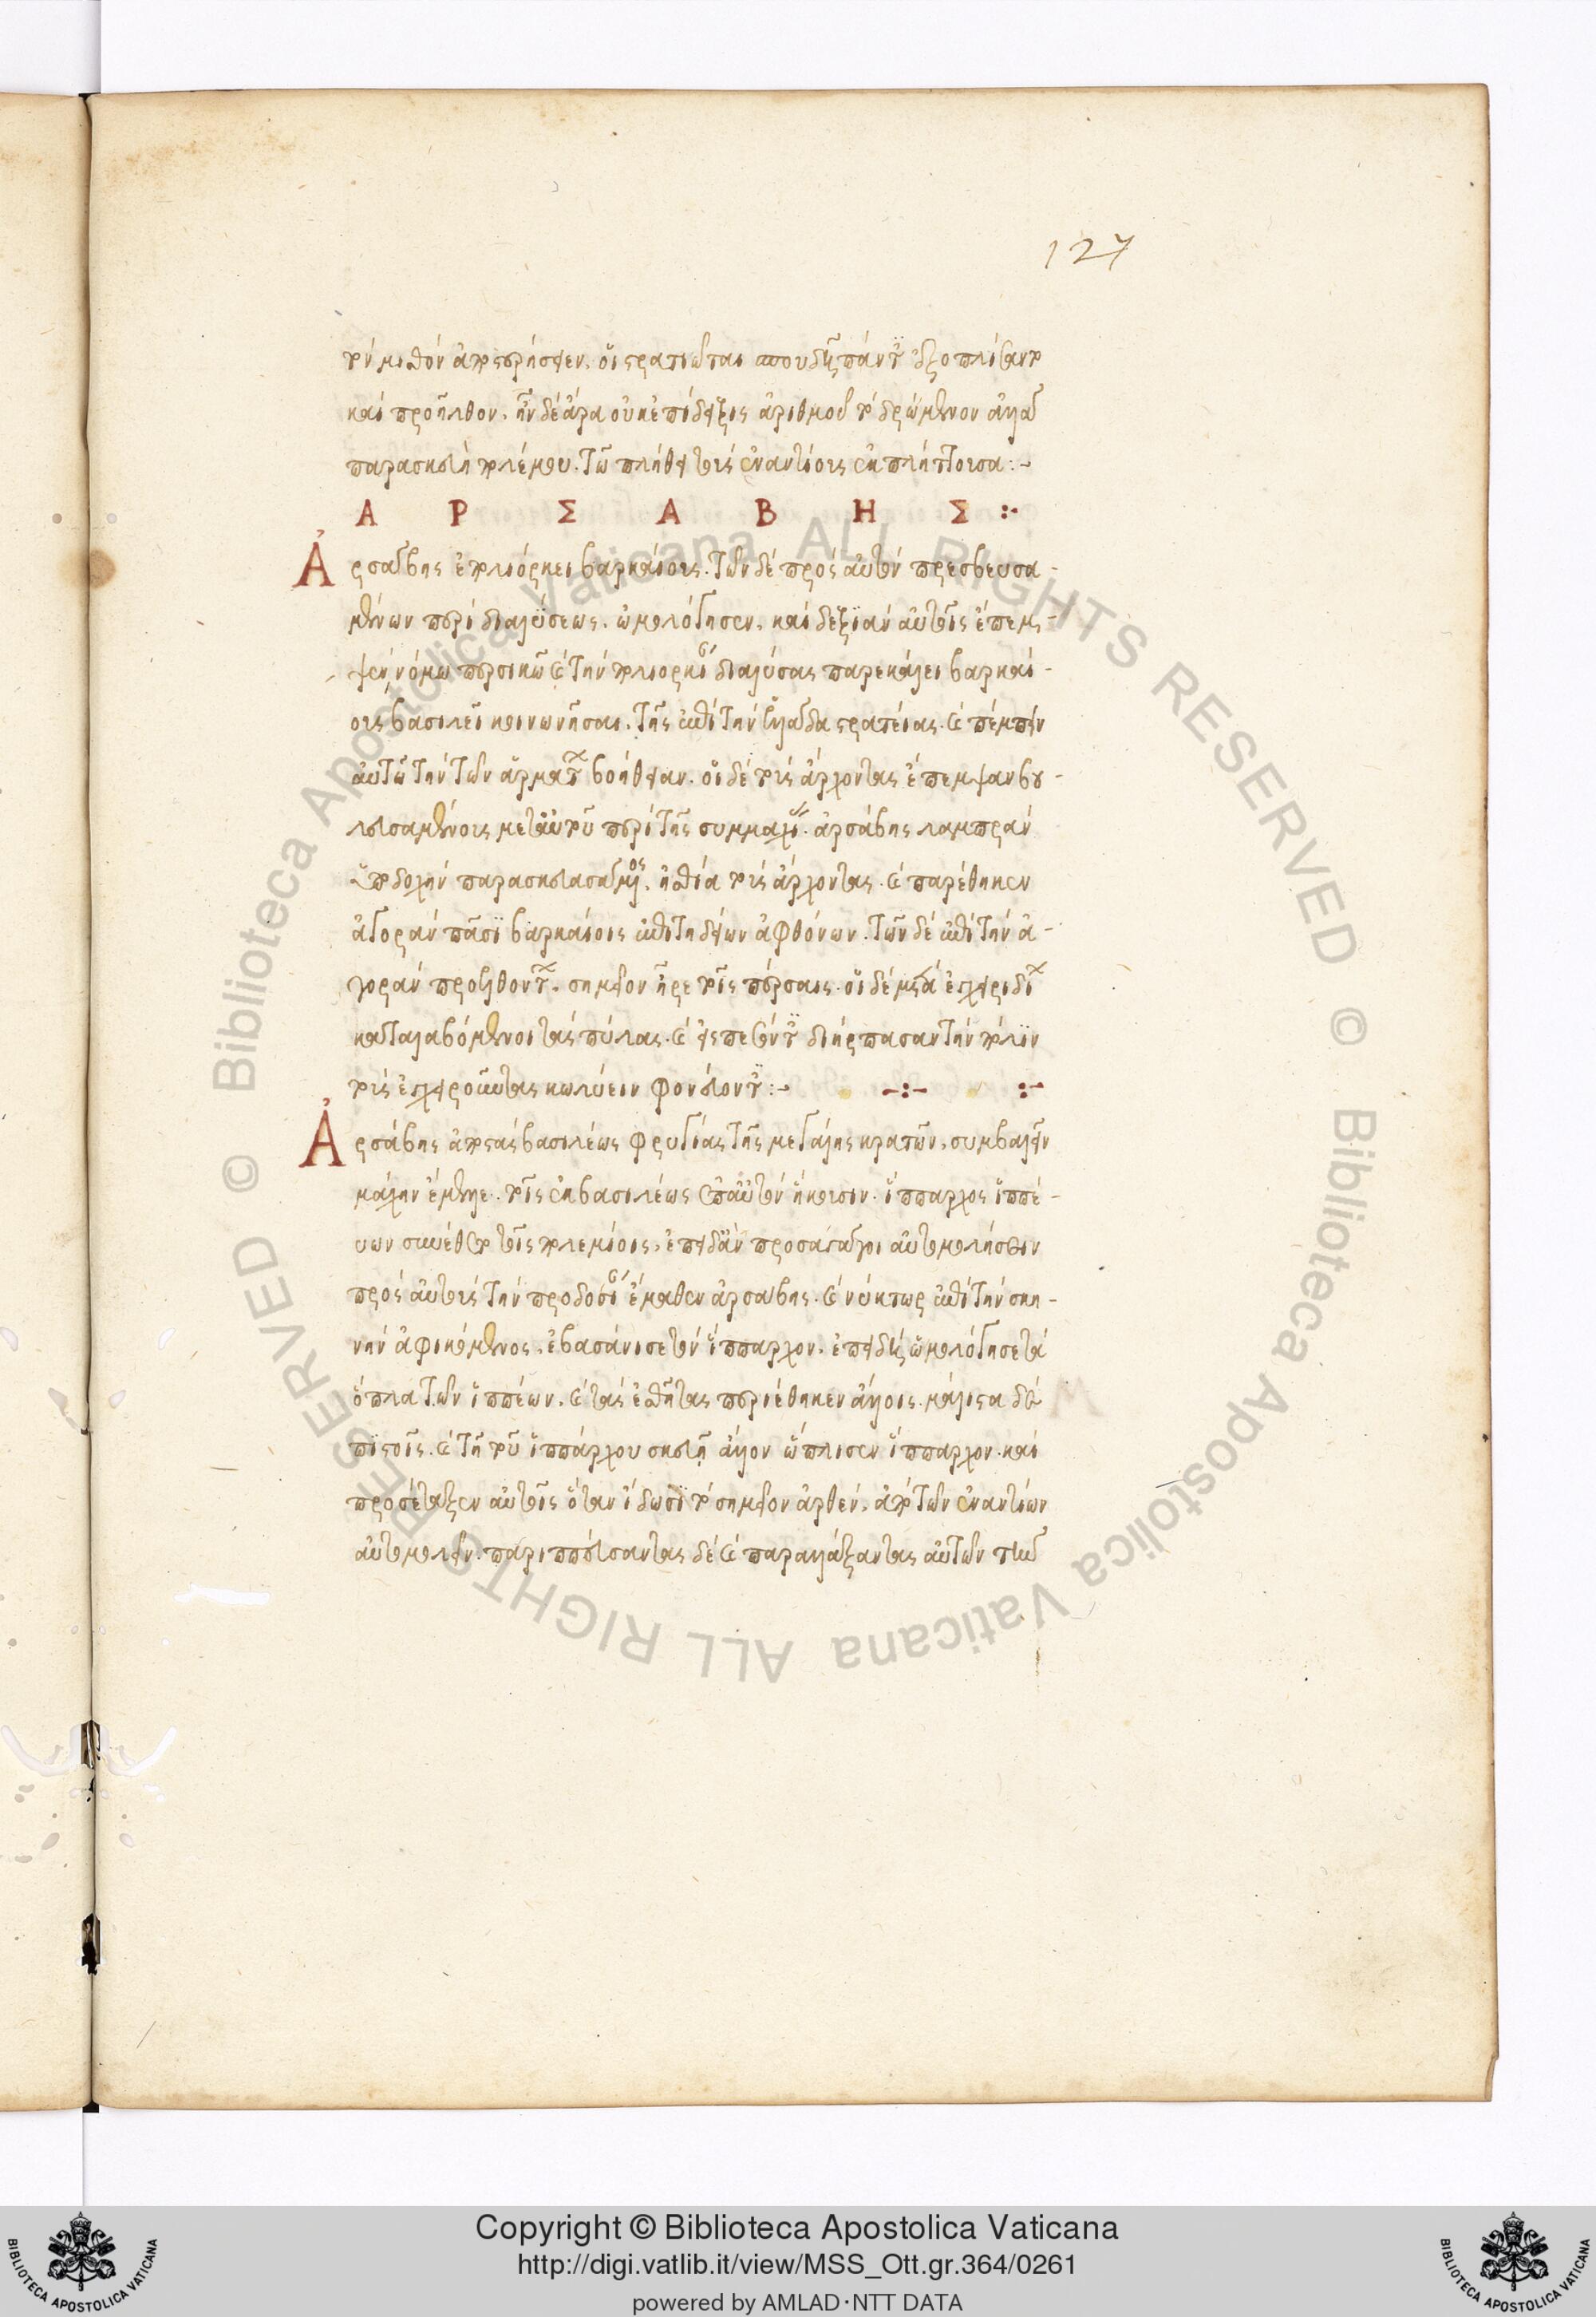 127
τὸν μισθὸν ἀποστερήσειεν. οἱ στρατιῶται σπουδῇ πάντες ἐξοπλίσαντο
καὶ προῆλθον. ἦν δὲ ἄρα οὐκ ἐπίδειξις ἀριθμοῦ τὸ δρώμενον ἀλλὰ
παρασκευὴ πολέμου. τῶ πλήθει τοὺς ἐναντίους ἐκπλήττουσα:-
Α Ρ Σ Α Β Η Σ :-
Ἀρσάβης ἐπολιόρκει βαρκαίους. τῶν δὲ πρὸς αὐτὸν πρεσβευσα-
μένων περὶ διαλύσεως. ὡμολόγησεν. καὶ δεξιὰν αὐτοῖς ἔπεμ-
ψεν νόμω περσικῶ καὶ τὴν πολιορκίαν διαλύσας παρεκάλει βαρκαί-
ους βασιλεῖ κοινωνῆσαι. τῆς ἐπὶ τὴν ἑλλάδα στρατείας. καὶ πέμπειν
αὐτῶ τὴν τῶν ἁρμάτων βοήθειαν. οἱ δὲ τοὺς ἄρχοντας ἔπεμψαν βου-
λευσαμένους μετ' αὐτοῦ περὶ τῆς συμμαχίας. ἀρσάβης λαμπρὰν
ὑποδοχὴν παρασκευασάμενος. ἡστία τοὺς ἄρχοντας. καὶ παρέθηκεν
ἀγορὰν πᾶσι βαρκαίοις ἐπιτηδείων ἀφθόνων. τῶν δὲ ἐπὶ τὴν ἀ-
γορὰν προελθόντων. σημεῖον ἦρε τοῖς πέρσαις. οἱ δὲ μετὰ ἐγχειριδίων
καταλαβόμενοι τὰς πύλας. καὶ εἰσπεσόντες διήρπασαν τὴν πόλιν
τοὺς ἐγχειροῦντας κωλύειν φονεύοντες:- -:- :-
Ἀρσάβης ἀποστὰς βασιλέως φρυγίας τῆς μεγάλης κρατῶν. συμβαλεῖν
μάχην ἔμελλε. τοῖς ἐκ βασιλέως ἐπ' αὐτὸν ἥκουσιν. ἵππαρχος ἱππέ-
υων συνέθετο τοῖς πολεμίοις. ἐπειδὰν προσάγωσι αὐτομολήσειν
πρὸς αὐτοὺς τὴν προδοσίαν ἔμαθεν ἀρσάβης. καὶ νύκτωρ ἐπὶ τὴν σκη-
νὴν ἀφικόμενος. ἐβασάνισε τὸν ἵππαρχον. ἐπειδὴ ὡμολόγησε τὰ
ὅπλα τῶν ἱππέων. καὶ τὰς ἐσθῆτας περιέθηκεν ἄλλοις. μάλιστα δὲ
πιστοῖς. καὶ τῆ τοῦ ἱππάρχου σκευῆ ἄλλον ὥπλισεν ἵππαρχον. καὶ
προσέταξεν αὐτοῖς ὅταν ἴδωσι τὸ σημεῖον ἀρθέν. ἀπὸ τῶν ἐναντίων
αὐτομολεῖν. παριππεύσαντας δὲ καὶ παραλλάξαντας αὐτῶν τὴν
Copyright © Biblioteca Apostolica Vaticana
http://digi.vatlib.it/view/MSS_Ott.gr.364/0261
powered by AMLAD·NTT DATA